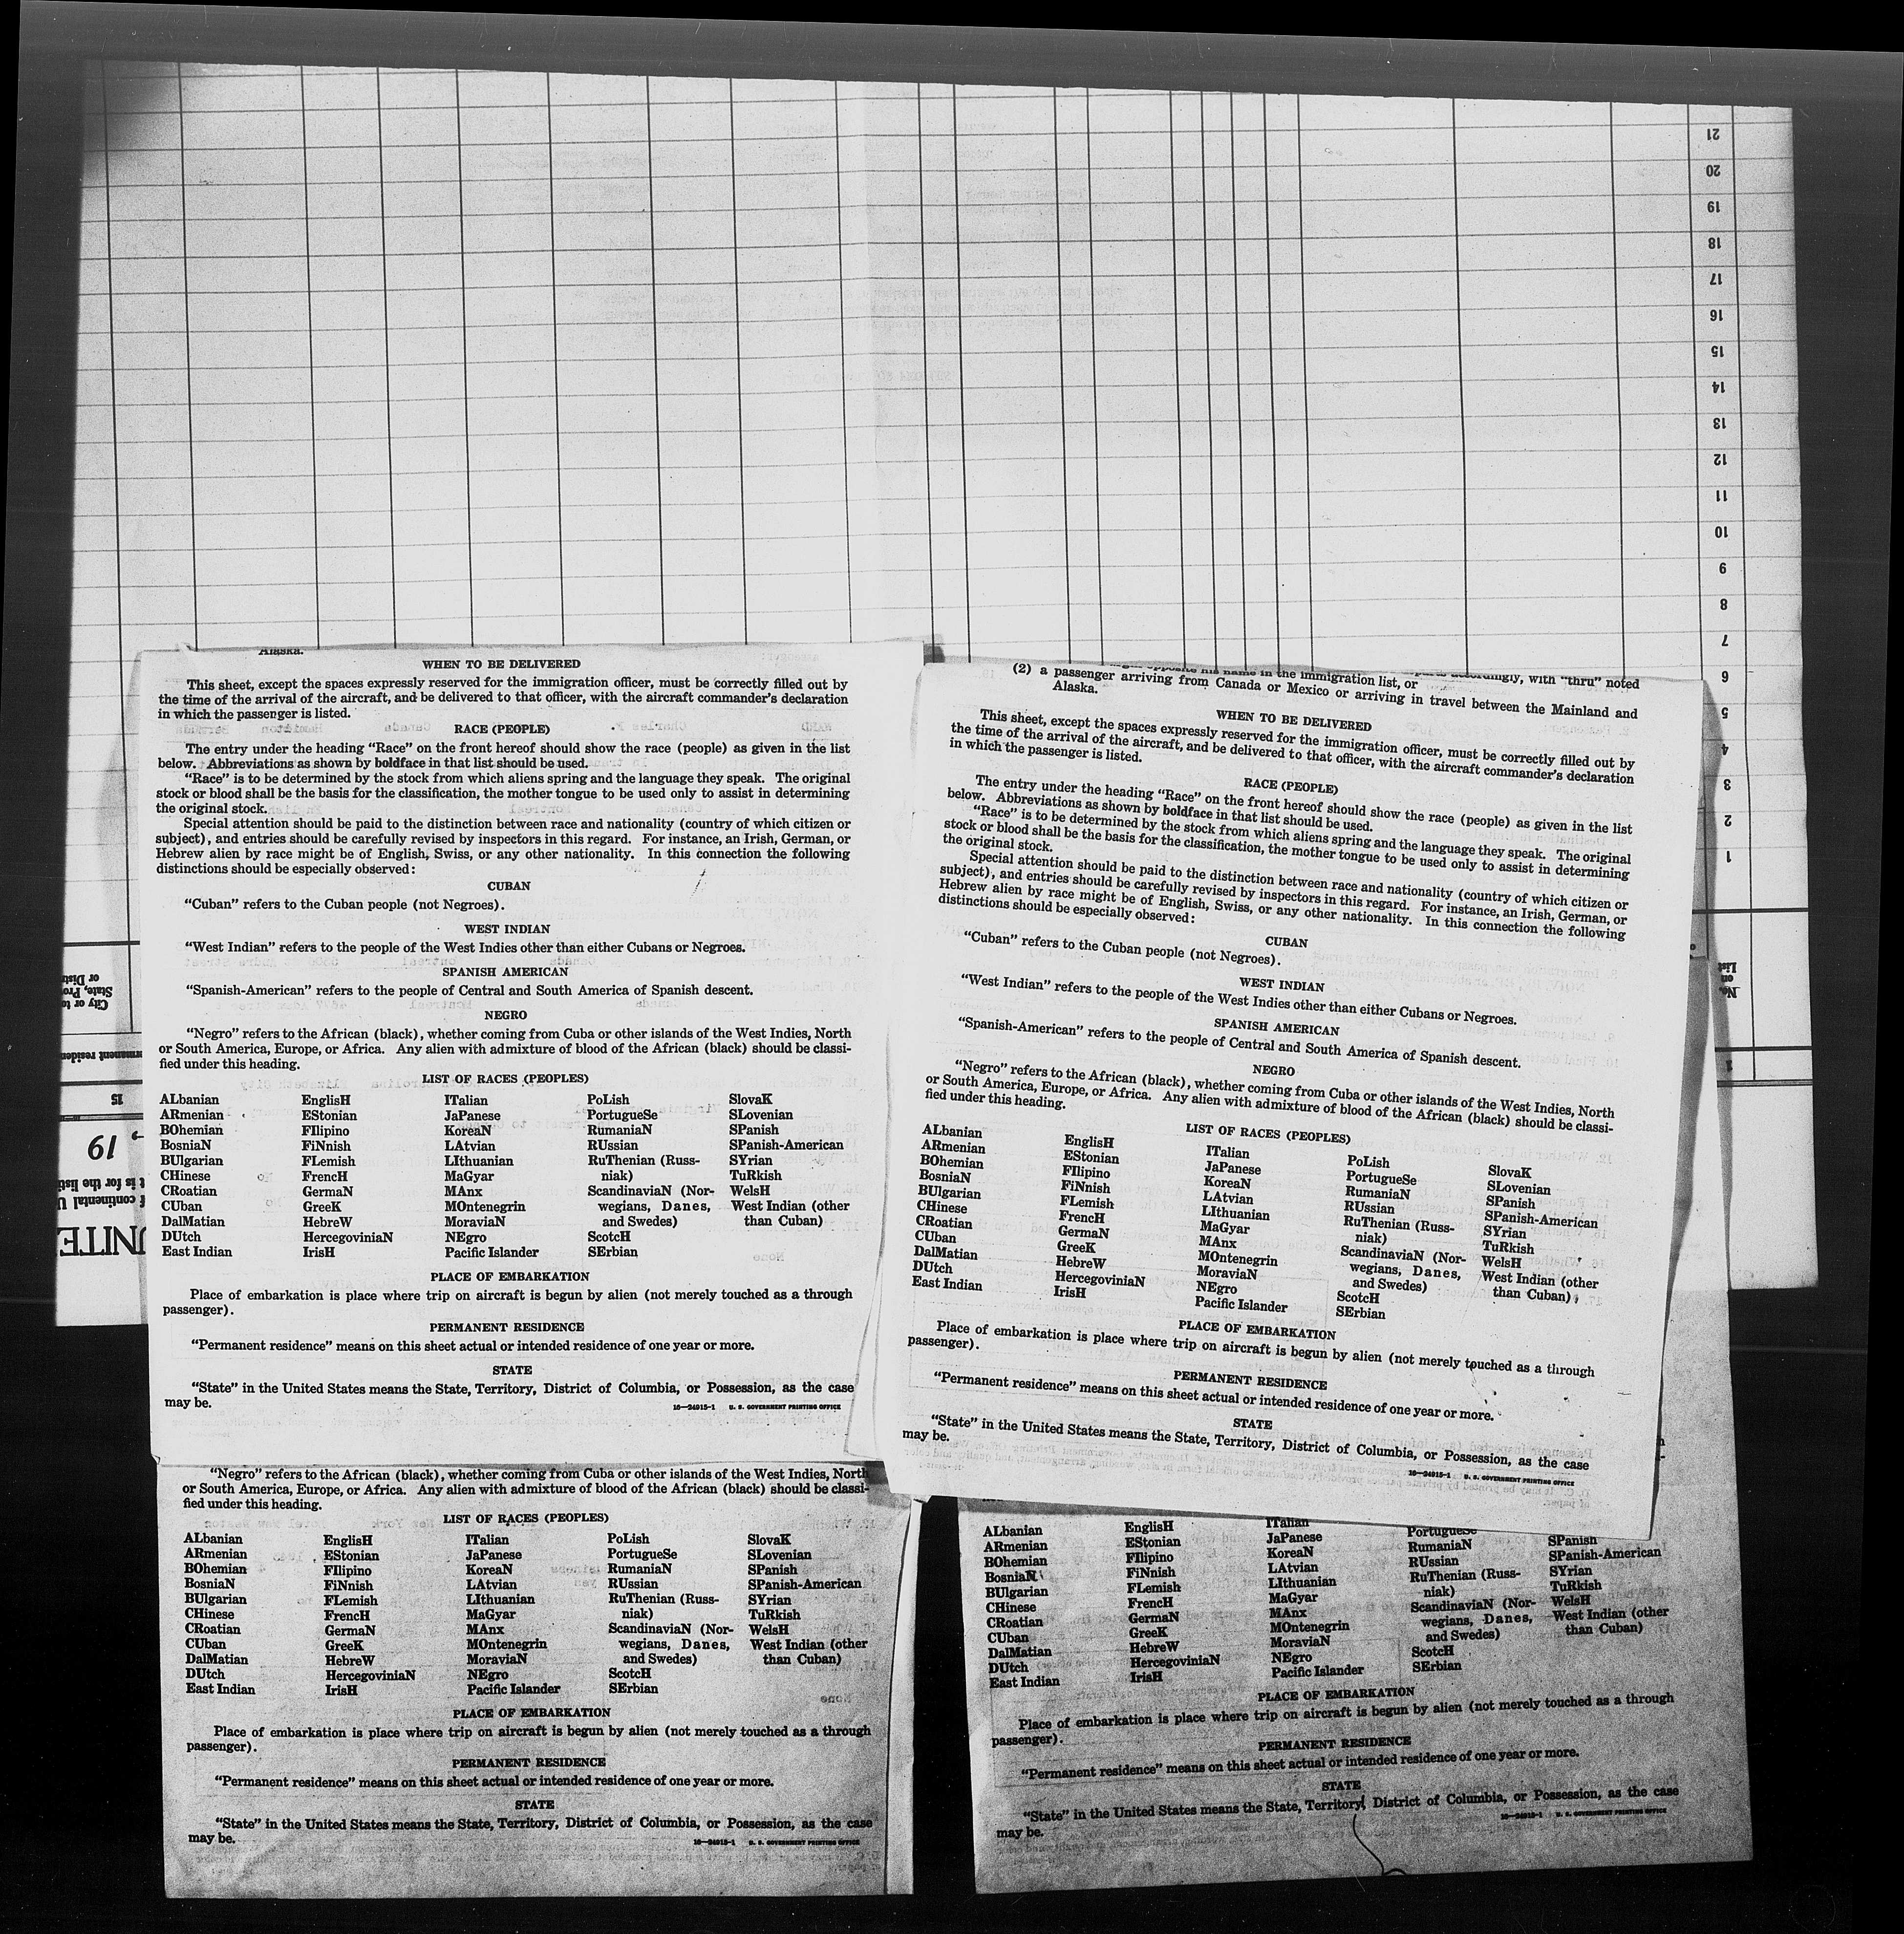 21
20
19
18
17
16
15
14
13
12
11
10
9
8
7
6
5
4
3
2
1
No.
on
List
1
City or to
State, Prov
or Distr
15
19
UNITE
Alaska.
WHEN TO BE DELIVERED
This sheet, except the spaces expressly reserved for the immigration officer, must be correctly filled out by
the time of the arrival of the aircraft, and be delivered to that officer, with the aircraft commander's declaration
in which the passenger is listed.
RACE (PEOPLE)
The entry under the heading “Race” on the front hereof should show the race (people) as given in the list
below. Abbreviations as shown by boldface in that list should be used.
“Race” is to be determined by the stock from which aliens spring and the language they speak. The original
stock or blood shall be the basis for the classification, the mother tongue to be used only to assist in determining
the original stock.
Special attention should be paid to the distinction between race and nationality (country of which citizen or
subject), and entries should be carefully revised by inspectors in this regard. For instance, an Irish, German, or
Hebrew alien by race might be of English, Swiss, or any other nationality. In this connection the following
distinctions should be especially observed:
CUBAN
“Cuban” refers to the Cuban people (not Negroes).
WEST INDIAN
“West Indian” refers to the people of the West Indies other than either Cubans or Negroes.
SPANISH AMERICAN
“Spanish-American” refers to the people of Central and South America of Spanish descent.
NEGRO
“Negro” refers to the African (black), whether coming from Cuba or other islands of the West Indies, North
or South America, Europe, or Africa. Any alien with admixture of blood of the African (black) should be classi-
fied under this heading.
LIST OF RACES (PEOPLES)
ALbanian EnglisH ITalian PoLish SlovaK
ARmenian EStonian JaPanese PortugueSe SLovenian
BOhemian FIlipino KoreaN RumaniaN SPanish
BosniaN FiNnish LAtvian RUssian SPanish-American
BUlgarian FLemish LIthuanian RuThenian (Russ- SYrian
CHinese FrencH MaGyar niak) TuRkish
CRoatian GermaN MAnx ScandinaviaN (Nor- WelsH
CUban GreeK MOntenegrin wegians, Danes, West Indian (other
DalMatian HebreW MoraviaN and Swedes) than Cuban)
DUtch HercegoviniaN NEgro ScotcH
East Indian IrisH Pacific Islander SErbian
PLACE OF EMBARKATION
Place of embarkation is place where trip on aircraft is begun by alien (not merely touched as a through
passenger).
PERMANENT RESIDENCE
“Permanent residence” means on this sheet actual or intended residence of one year or more.
STATE
“State” in the United States means the State, Territory, District of Columbia, or Possession, as the case
may be.
16—24915-1 U. S. GOVERNMENT PRINTING OFFICE
(2) a passenger arriving from Canada or Mexico or arriving in travel between the Mainland and
Alaska.
WHEN TO BE DELIVERED
This sheet, except the spaces expressly reserved for the immigration officer, must be correctly filled out by
the time of the arrival of the aircraft, and be delivered to that officer, with the aircraft commander's declaration
in which the passenger is listed.
RACE (PEOPLE)
The entry under the heading “Race” on the front hereof should show the race (people) as given in the list
below. Abbreviations as shown by boldface in that list should be used.
“Race” is to be determined by the stock from which aliens spring and the language they speak. The original
stock or blood shall be the basis for the classification, the mother tongue to be used only to assist in determining
the original stock.
Special attention should be paid to the distinction between race and nationality (country of which citizen or
subject), and entries should be carefully revised by inspectors in this regard. For instance, an Irish, German, or
Hebrew alien by race might be of English, Swiss, or any other nationality. In this connection the following
distinctions should be especially observed:
CUBAN
“Cuban” refers to the Cuban people (not Negroes).
WEST INDIAN
“West Indian” refers to the people of the West Indies other than either Cubans or Negroes.
SPANISH AMERICAN
“Spanish-American” refers to the people of Central and South America of Spanish descent.
NEGRO
“Negro” refers to the African (black), whether coming from Cuba or other islands of the West Indies, North
or South America, Europe, or Africa. Any alien with admixture of blood of the African (black) should be classi-
fied under this heading.
LIST OF RACES (PEOPLES)
ALbanian EnglisH ITalian PoLish SlovaK
ARmenian EStonian JaPanese PortugueSe SLovenian
BOhemian FIlipino KoreaN RumaniaN SPanish
BosniaN FiNnish LAtvian RUssian SPanish-American
BUlgarian FLemish LIthuanian RuThenian (Russ- SYrian
CHinese FrencH MaGyar niak) TuRkish
CRoatian GermaN MAnx ScandinaviaN (Nor- WelsH
CUban GreeK MOntenegrin wegians, Danes, West Indian (other
DalMatian HebreW MoraviaN and Swedes) than Cuban)
DUtch HercegoviniaN NEgro ScotcH
East Indian IrisH Pacific Islander SErbian
PLACE OF EMBARKATION
Place of embarkation is place where trip on aircraft is begun by alien (not merely touched as a through
passenger).
PERMANENT RESIDENCE
“Permanent residence” means on this sheet actual or intended residence of one year or more.
STATE
“State” in the United States means the State, Territory, District of Columbia, or Possession, as the case
may be.
16—24915-1 U. S. GOVERNMENT PRINTING OFFICE
“Negro” refers to the African (black), whether coming from Cuba or other islands of the West Indies, North
or South America, Europe, or Africa. Any alien with admixture of blood of the African (black) should be classi-
fied under this heading.
LIST OF RACES (PEOPLES)
ALbanian EnglisH ITalian PoLish SlovaK
ARmenian EStonian JaPanese PortugueSe SLovenian
BOhemian FIlipino KoreaN RumaniaN SPanish
BosniaN FiNnish LAtvian RUssian SPanish-American
BUlgarian FLemish LIthuanian RuThenian (Russ- SYrian
CHinese FrencH MaGyar niak) TuRkish
CRoatian GermaN MAnx ScandinaviaN (Nor- WelsH
CUban GreeK MOntenegrin wegians, Danes, West Indian (other
DalMatian HebreW MoraviaN and Swedes) than Cuban)
DUtch HercegoviniaN NEgro ScotcH
East Indian IrisH Pacific Islander SErbian
PLACE OF EMBARKATION
Place of embarkation is place where trip on aircraft is begun by alien (not merely touched as a through
passenger).
PERMANENT RESIDENCE
“Permanent residence” means on this sheet actual or intended residence of one year or more.
STATE
“State” in the United States means the State, Territory, District of Columbia, or Possession, as the case
may be.
16—24915-1 U. S. GOVERNMENT PRINTING OFFICE
ALbanian EnglisH ITalian PortugueSe SPanish
ARmenian EStonian JaPanese RumaniaN SPanish-American
BOhemian FIlipino KoreaN RUssian SYrian
BosniaN FiNnish LAtvian RuThenian (Russ- TuRkish
BUlgarian FLemish LIthuanian niak) WelsH
CHinese FrencH MaGyar ScandinaviaN (Nor- West Indian (other
CRoatian GermaN MAnx wegians, Danes, than Cuban)
CUban GreeK MOntenegrin and Swedes)
DalMatian HebreW MoraviaN ScotcH
DUtch HercegoviniaN NEgro SErbian
East Indian IrisH Pacific Islander
PLACE OF EMBARKATION
Place of embarkation is place where trip on aircraft is begun by alien (not merely touched as a through
passenger).
PERMANENT RESIDENCE
“Permanent residence” means on this sheet actual or intended residence of one year or more.
STATE
“State” in the United States means the State, Territory, District of Columbia, or Possession, as the case
may be.
16—24915-1 U. S. GOVERNMENT PRINTING OFFICE